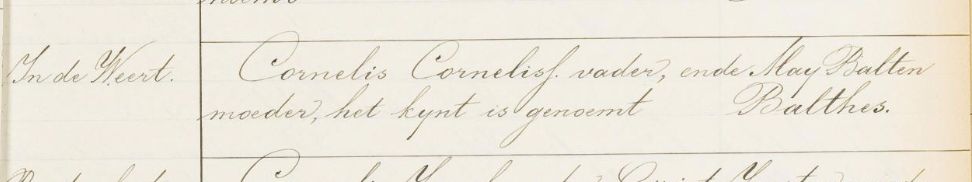 In de Weert.
Cornelis Cornelisf. vader, ende May Balten
moeder, het kynt is genoemt Balthes.